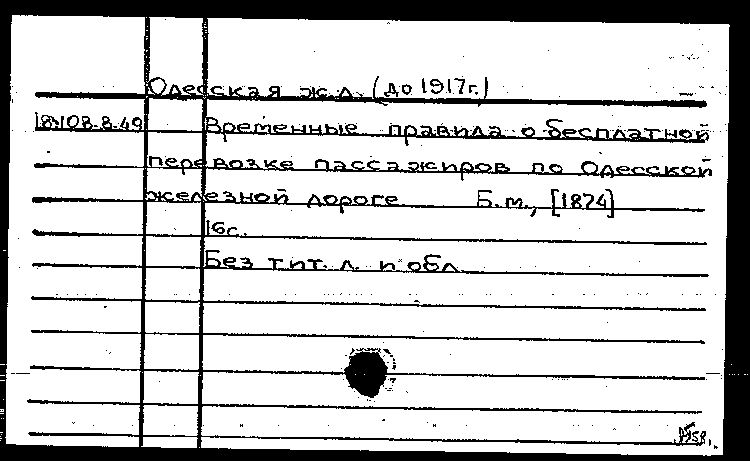 Одесская ж.д. (до 1917г.)
18\108-8-49 Временные правила о бесплатной
перевозке пассажиров по Одесской
железной дороге Б.м., [1874]
16с.
Без тит. л. и обл.